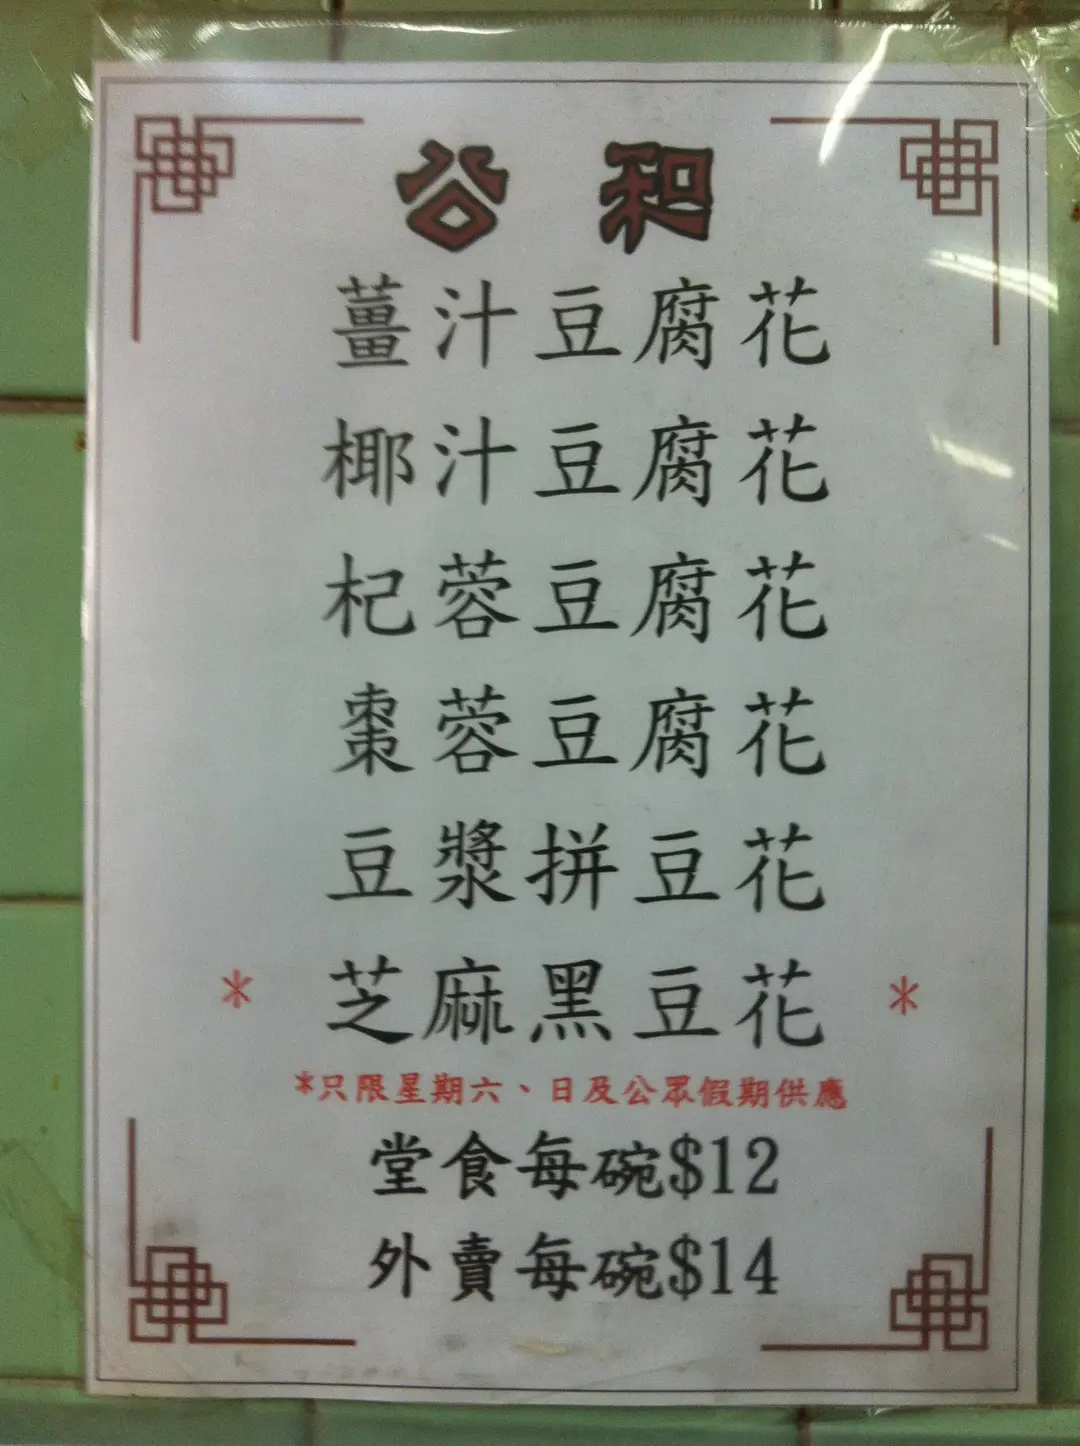 公和
薑汁豆腐花
椰汁豆腐花
杞蓉豆腐花
棗蓉豆腐花
豆漿拼豆花
* 芝麻黑豆花 *
*只限星期六、日及公眾假期供應
堂食每碗$12
外賣每碗$14